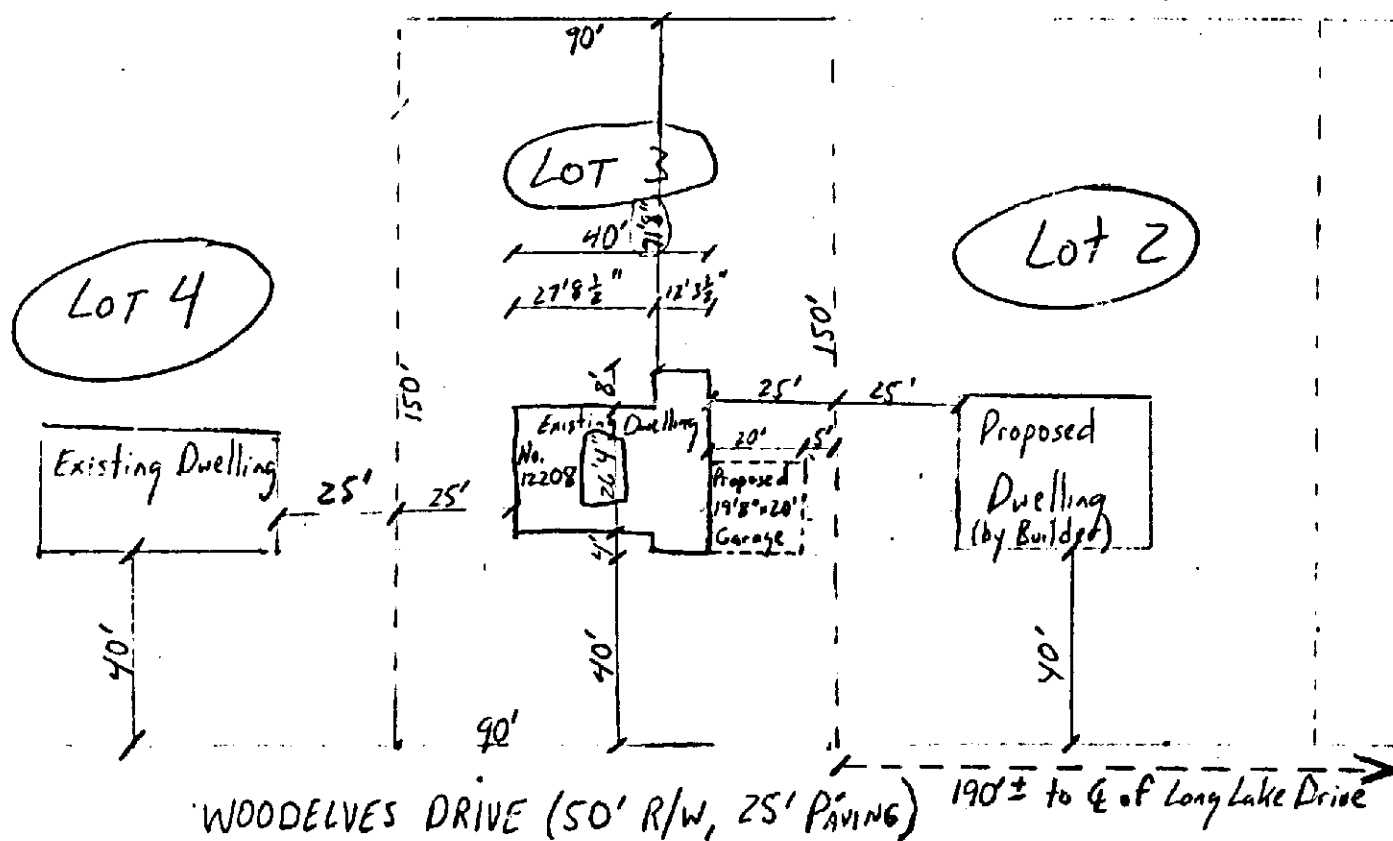 90'
LOT 3
40'
71'8"
27'8½"
12'3½"
Lot 2
LOT 4
150'
150'
8'
25'
25'
Existing Dwelling
No.
12208
26'4"
20'
5'
Proposed
19'8"x20'
Garage
Proposed
Dwelling
(by Builder)
Existing Dwelling
25'
25'
4'
40'
40'
40'
90'
WOODELVES DRIVE (50' R/W, 25' PAVING)
190'± to ℄ of Long Lake Drive